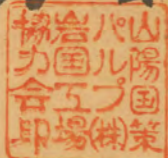 山陽国策
パルプ㈱
岩国工場
協力会印